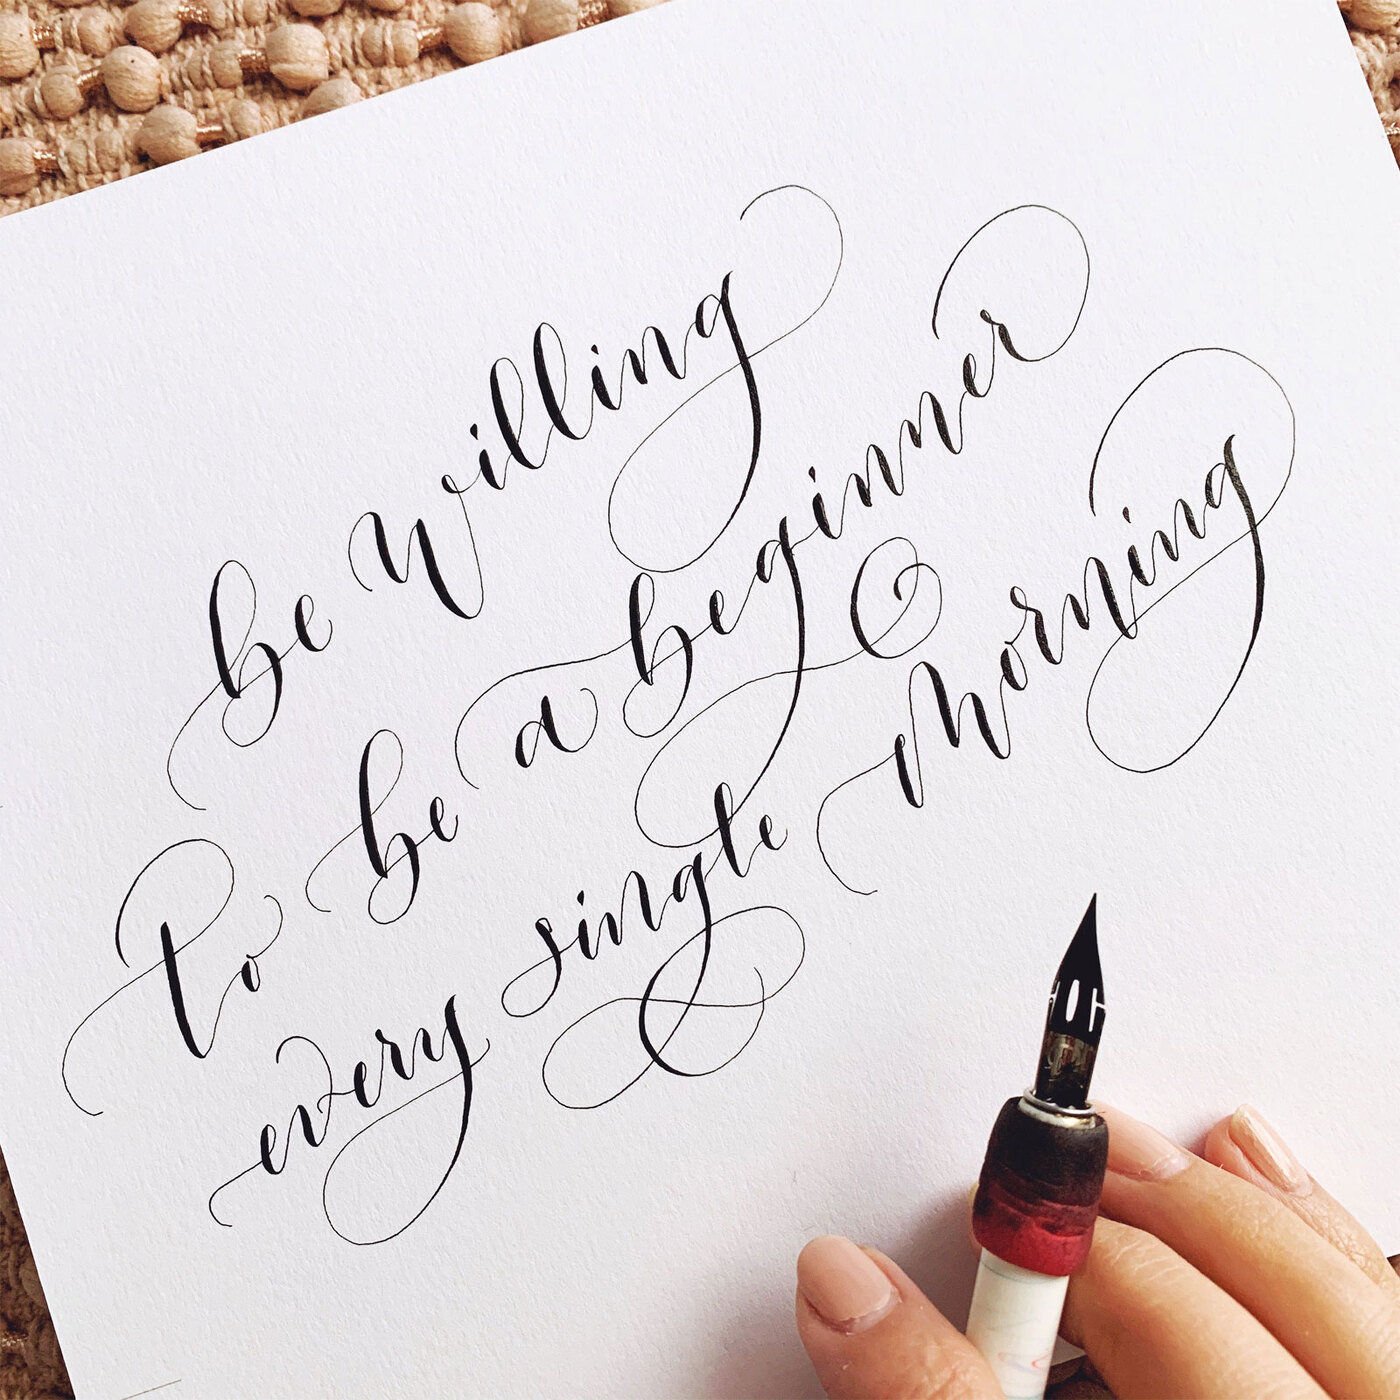 be willing
to be a beginner
every single morning